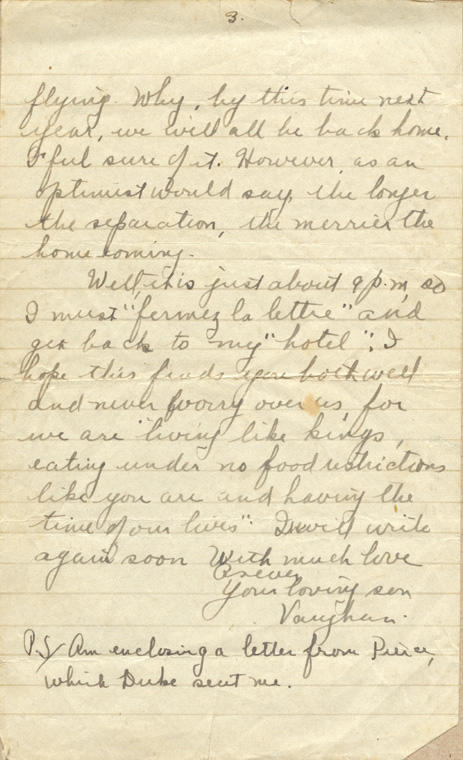 3.
flying. Why, by this time next
year, we will all be back home.
I feel sure of it. However, as an
optimist would say, the longer
the separation, the merrier the
home coming.
Well, it is just about 9 p.m, so
I must "fermez la lettre" and
get back to my "hotel". I
hope this finds you both well
and never worry over us, for
we are "living like kings,
eating under no food restrictions
like you are and having the
time of our lives". I will write
again soon With much love
As ever
Your loving son
Vaughan.
P.S/ Am enclosing a letter from Pierce,
which Duke sent me.